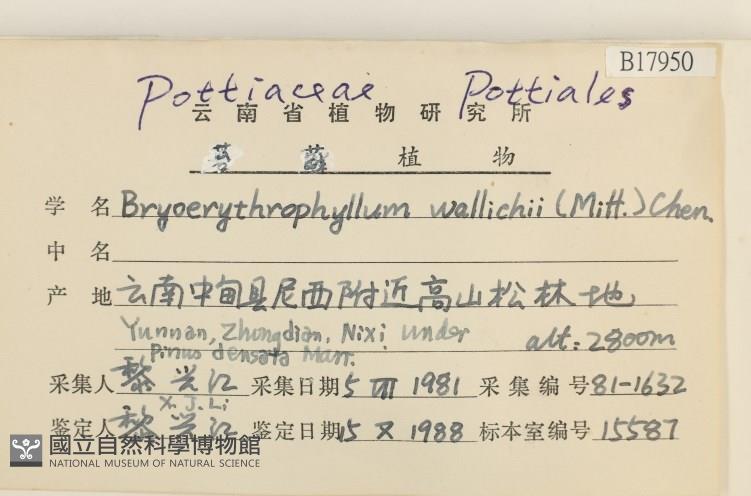 B17950
Pottiaceae Pottiales
云南省植物研究所
苔藓植物
学名 Bryoerythrophyllum wallichii (Mitt.) Chen.
中名
产地 云南中甸县尼西附近高山松林地
Yunnan, Zhongdian, Nixi under alt: 2800m
Pinus densata Marr.
采集人 黎兴江 采集日期 5 VIII 1981 采集编号 81-1632
X. J. Li
鉴定人 黎兴江 鉴定日期 15 X 1988 标本室编号 15587
國立自然科學博物館
NATIONAL MUSEUM OF NATURAL SCIENCE